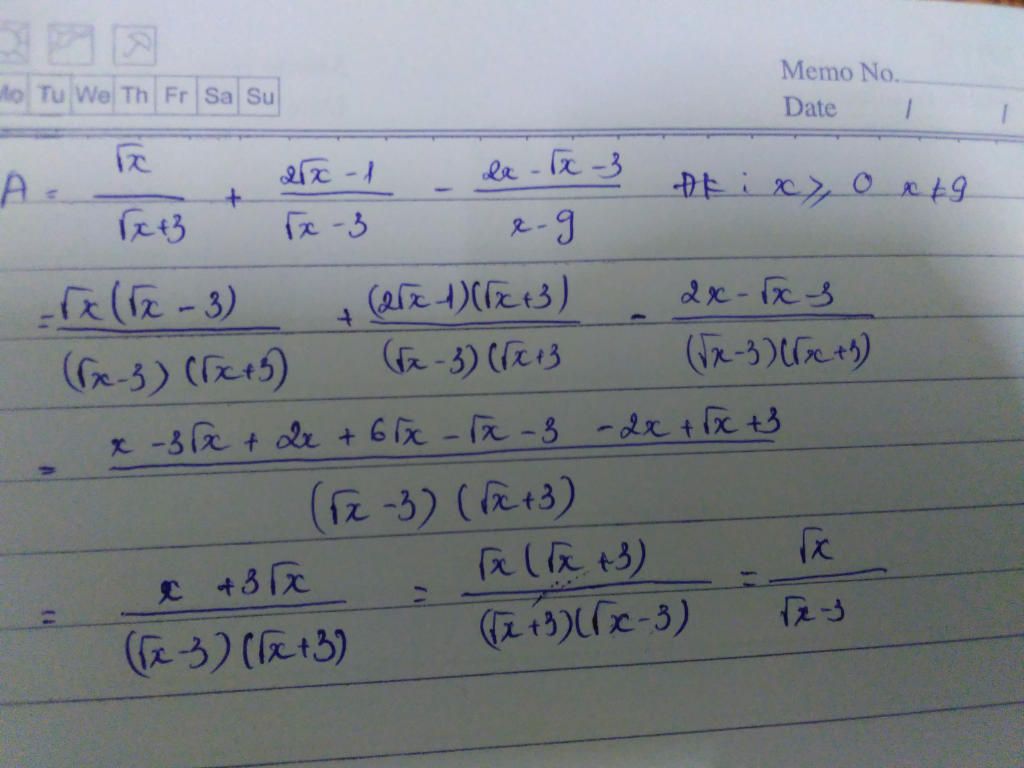 Memo No.
Mo Tu We Th Fr Sa Su
Date / /
A = √x/(√x+3) + (2√x -1)/(√x -3) - (2x -√x -3)/(x-9) ĐK : x ⩾ 0 x ≠ 9
= √x(√x - 3)/((√x-3)(√x+3)) + (2√x-1)(√x+3)/((√x-3)(√x+3 - (2x-√x-3)/((√x-3)(√x+3))
= (x -3√x + 2x + 6√x -√x -3 -2x +√x +3)/((√x -3)(√x+3))
= (x +3√x)/((√x-3)(√x+3)) = √x(√x +3)/((√x+3)(√x-3)) = √x/(√x-3)